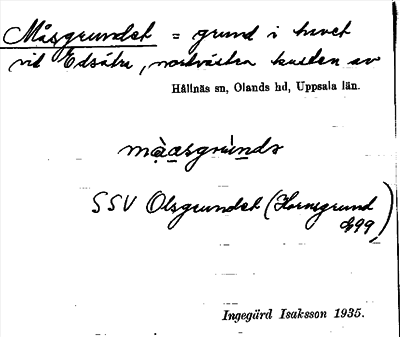 Måsgrundet = grund i havet
vid Edsätra, nordvästra kusten av
Hållnäs sn, Olands hd, Uppsala län.
mὰ̀a̲sgrúnda
SSV Olsgrundet (Hornsgrund
Ingegärd Isaksson 1935.